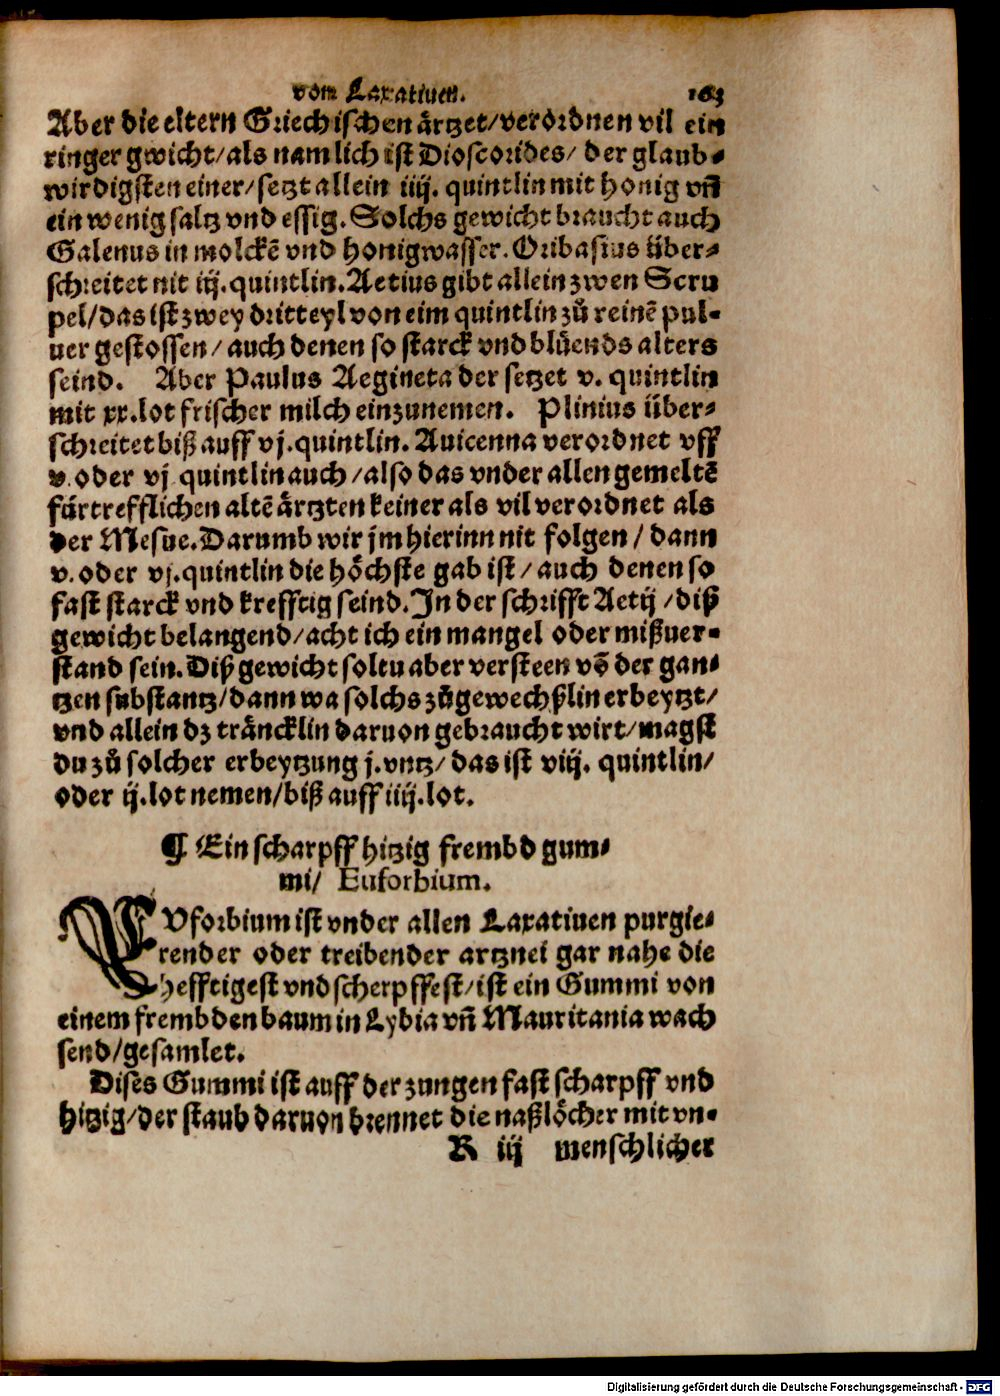 von Laxatiuen. 163
Aber die eltern Griechischen ärtzet/verordnen vil ein
ringer gwicht/als namlich ist Dioscorides/ der glaub-
wirdigsten einer/setzt allein iiij. quintlin mit honig vñ
ein wenig saltz vnd essig. Solchs gewicht braucht auch
Galenus in molckē vnd honigwasser. Oribasius über-
schreitet nit iij. quintlin. Aetius gibt allein zwen Scru
pel/das ist zwey dritteyl von eim quintlin zů reinē pul-
uer gestossen/auch denen so starck vnd blůends alters
seind. Aber Paulus Aegineta der setzet v. quintlin
mit xx.lot frischer milch einzunemen. Plinius über-
schreitet biß auff vj.quintlin. Auicenna verordnet vff
v. oder vj quintlin auch/also das vnder allen gemeltē
fürtrefflichen altē ärtzten keiner als vil verordnet als
der Mesue. Darumb wir jm hierinn nit folgen/ dann
v. oder vj.quintlin die höchste gab ist/auch denen so
fast starck vnd krefftig seind. In der schrifft Aetij /diß
gewicht belangend/acht ich ein mangel oder mißuer-
stand sein. Diß gewicht soltu aber versteen vō der gan-
tzen substantz/dann wa solchs zůgewechßlin erbeytzt/
vnd allein dz träncklin daruon gebraucht wirt/magst
du zů solcher erbeytzung j.vntz/das ist viij. quintlin/
oder ij.lot nemen/biß auff iiij.lot.
¶ Ein scharpff hitzig frembd gum-
mi/ Euforbium.
EVforbium ist vnder allen Laxatiuen purgie-
render oder treibender artznei gar nahe die
hefftigest vnd scherpffest/ist ein Gummi von
einem frembden baum in Lybia vñ Mauritania wach
send/gesamlet.
Dises Gummi ist auff der zungen fast scharpff vnd
hitzig/der staub daruon brennet die naßlöcher mit vn-
R iij menschlicher
Digitalisierung gefördert durch die Deutsche Forschungsgemeinschaft - DFG